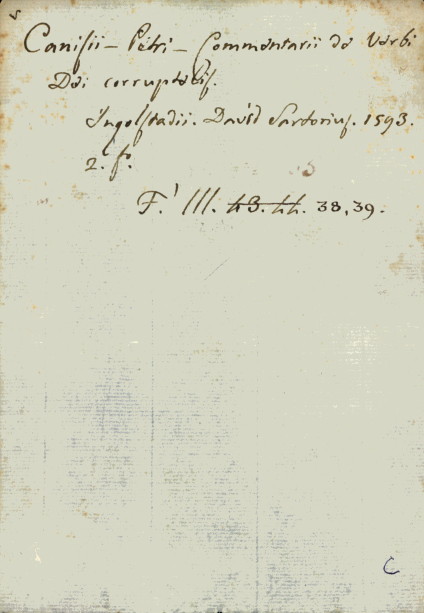 Canisii - Petri - Commentarii de Verbi
Dei corruptelis.
Ingolstadii. David Sartorius. 1593.
2. f°.
F.' III. 43. 44. 38, 39.
C